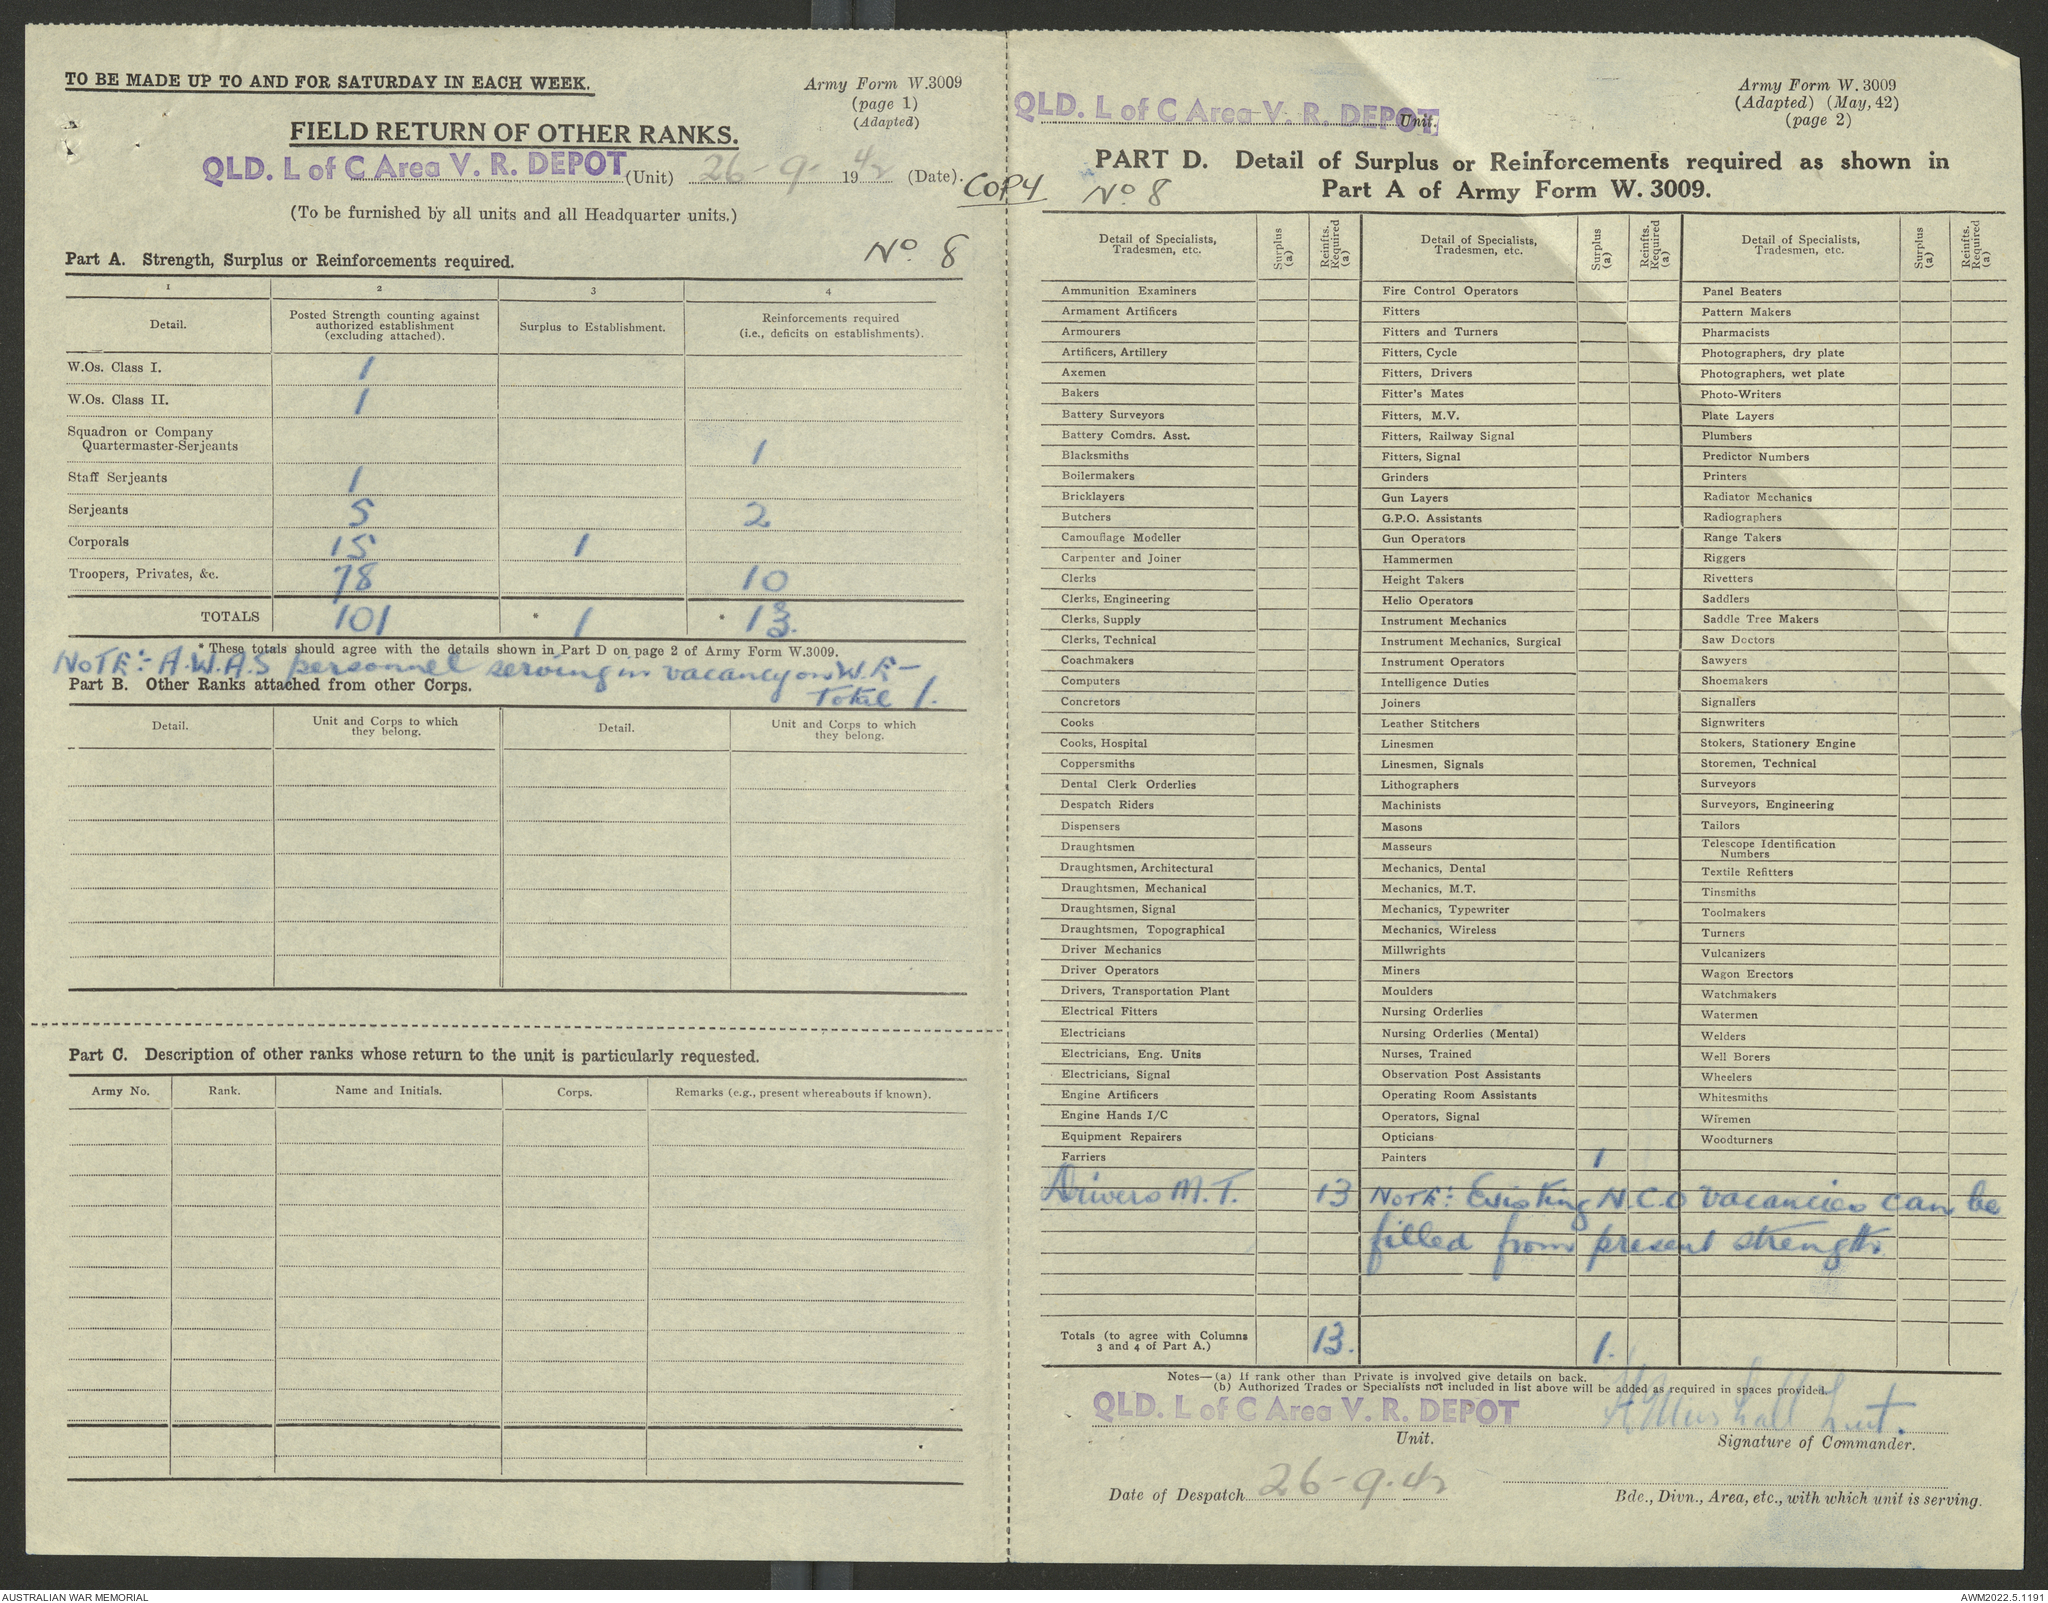 TO BE MADE UP TO AND FOR SATURDAY IN EACH WEEK.
Army Form W.3009
(page 1)
(Adapted)
FIELD RETURN OF OTHER RANKS.
QLD. L of C Area V. R. DEPOT (Unit) 26-9-1942 (Date).
COPY
(To be furnished by all units and all Headquarter units.)
No 8
Part A. Strength, Surplus or Reinforcements required.
1 2 3 4
Detail. Posted Strength counting against authorized establishment (excluding attached). Surplus to Establishment. Reinforcements required (i.e., deficits on establishments).
W.Os. Class I. 1
W.Os. Class II. 1
Squadron or Company Quartermaster-Serjeants 1
Staff Serjeants 1
Serjeants 5 2
Corporals 15 1
Troopers, Privates, &c. 78 10
TOTALS 101 * 1 * 13.
* These totals should agree with the details shown in Part D on page 2 of Army Form W.3009.
NOTE:- A.W.A.S personnel serving in vacancy on W.E -
Total 1.
Part B. Other Ranks attached from other Corps.
Detail. Unit and Corps to which they belong. Detail. Unit and Corps to which they belong.
Part C. Description of other ranks whose return to the unit is particularly requested.
Army No. Rank. Name and Initials. Corps. Remarks (e.g., present whereabouts if known).
QLD. L of C Area V. R. DEPOT Unit.
Army Form W. 3009
(Adapted) (May, 42)
(page 2)
PART D. Detail of Surplus or Reinforcements required as shown in
Part A of Army Form W. 3009.
No 8
Detail of Specialists, Tradesmen, etc. Surplus (a) Reinfts. Required (a) Detail of Specialists, Tradesmen, etc. Surplus (a) Reinfts. Required (a) Detail of Specialists, Tradesmen, etc. Surplus (a) Reinfts. Required (a)
Ammunition Examiners Fire Control Operators Panel Beaters
Armament Artificers Fitters Pattern Makers
Armourers Fitters and Turners Pharmacists
Artificers, Artillery Fitters, Cycle Photographers, dry plate
Axemen Fitters, Drivers Photographers, wet plate
Bakers Fitter's Mates Photo-Writers
Battery Surveyors Fitters, M.V. Plate Layers
Battery Comdrs. Asst. Fitters, Railway Signal Plumbers
Blacksmiths Fitters, Signal Predictor Numbers
Boilermakers Grinders Printers
Bricklayers Gun Layers Radiator Mechanics
Butchers G.P.O. Assistants Radiographers
Camouflage Modeller Gun Operators Range Takers
Carpenter and Joiner Hammermen Riggers
Clerks Height Takers Rivetters
Clerks, Engineering Helio Operators Saddlers
Clerks, Supply Instrument Mechanics Saddle Tree Makers
Clerks, Technical Instrument Mechanics, Surgical Saw Doctors
Coachmakers Instrument Operators Sawyers
Computers Intelligence Duties Shoemakers
Concretors Joiners Signallers
Cooks Leather Stitchers Signwriters
Cooks, Hospital Linesmen Stokers, Stationery Engine
Coppersmiths Linesmen, Signals Storemen, Technical
Dental Clerk Orderlies Lithographers Surveyors
Despatch Riders Machinists Surveyors, Engineering
Dispensers Masons Tailors
Draughtsmen Masseurs Telescope Identification Numbers
Draughtsmen, Architectural Mechanics, Dental Textile Refitters
Draughtsmen, Mechanical Mechanics, M.T. Tinsmiths
Draughtsmen, Signal Mechanics, Typewriter Toolmakers
Draughtsmen, Topographical Mechanics, Wireless Turners
Driver Mechanics Millwrights Vulcanizers
Driver Operators Miners Wagon Erectors
Drivers, Transportation Plant Moulders Watchmakers
Electrical Fitters Nursing Orderlies Watermen
Electricians Nursing Orderlies (Mental) Welders
Electricians, Eng. Units Nurses, Trained Well Borers
Electricians, Signal Observation Post Assistants Wheelers
Engine Artificers Operating Room Assistants Whitesmiths
Engine Hands I/C Operators, Signal Wiremen
Equipment Repairers Opticians Woodturners
Farriers Painters 1
Drivers M.T. 13 NOTE: Existing N.C.O vacancies can be
filled from present strength.
Totals (to agree with Columns 3 and 4 of Part A.) 13. 1.
Notes—(a) If rank other than Private is involved give details on back.
(b) Authorized Trades or Specialists not included in list above will be added as required in spaces provided.
QLD. L of C Area V. R. DEPOT H Marshall Lieut.
Unit. Signature of Commander.
Date of Despatch 26-9-42
Bde., Divn., Area, etc., with which unit is serving.
AUSTRALIAN WAR MEMORIAL AWM2022.5.1191